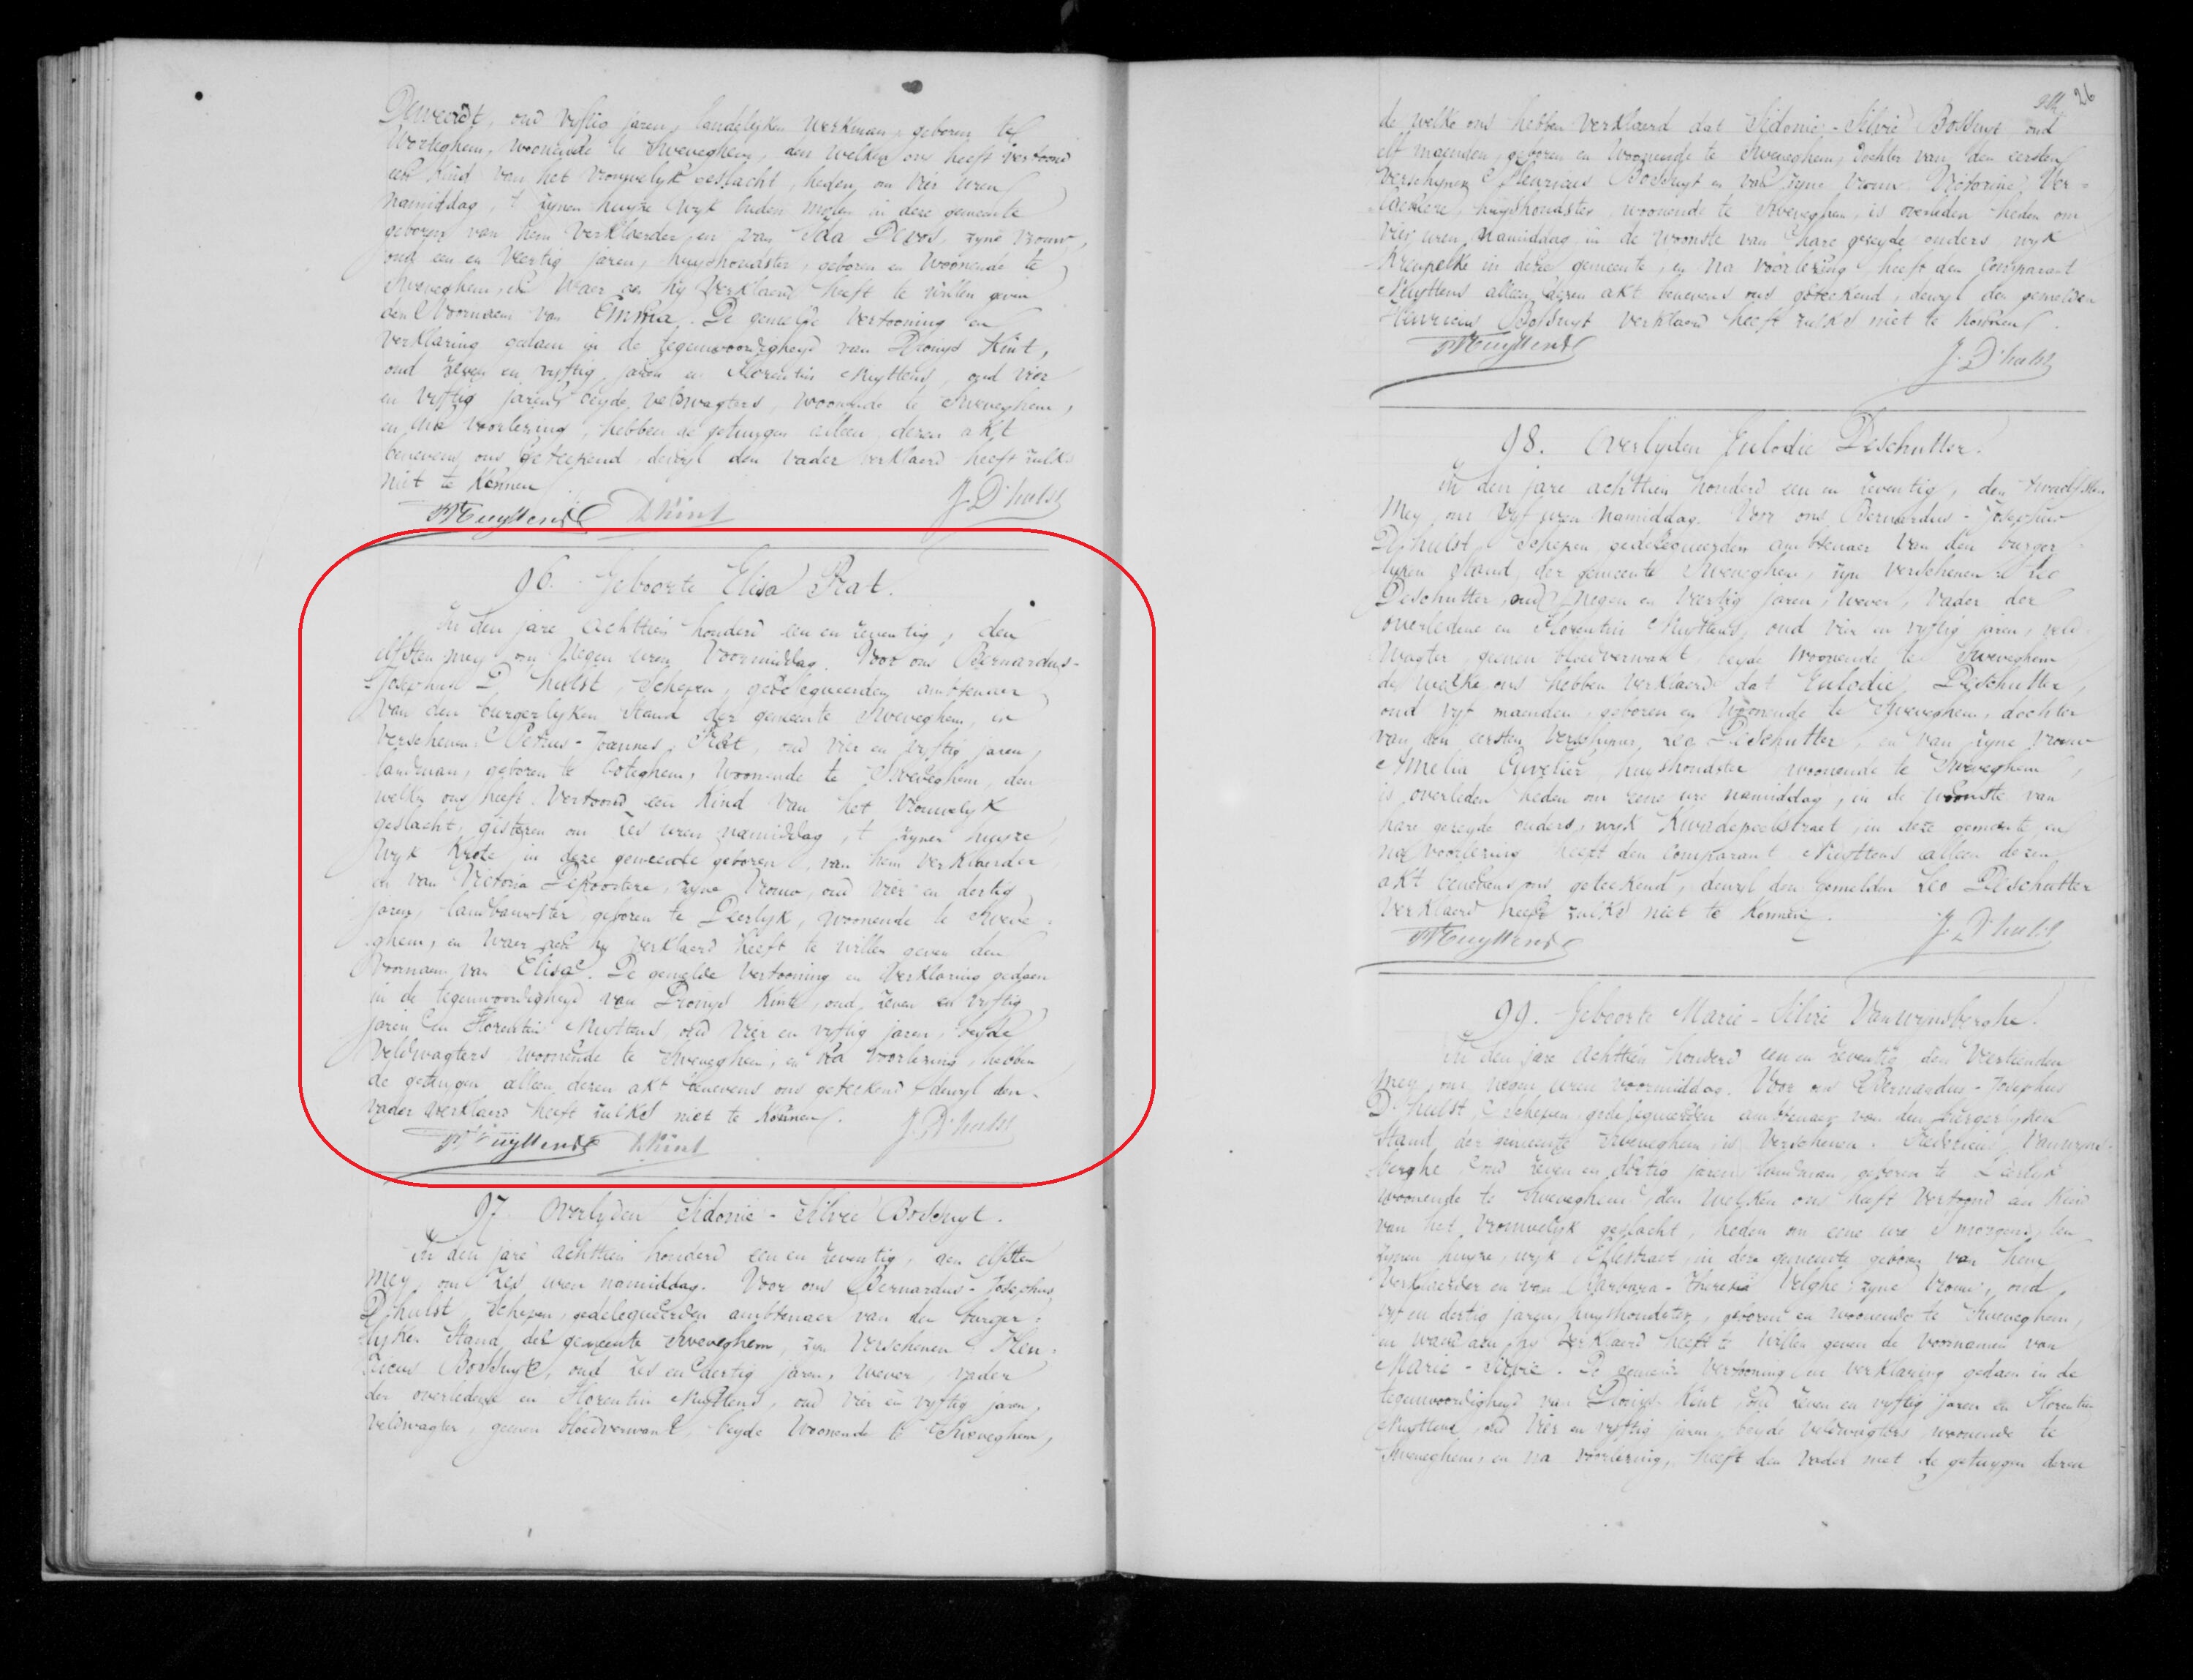 Dewerdt, oud vyftig jaren, landelyken werkman, geboren te
Worteghem, woonende te Sweveghem, den welken ons heeft vertoond
een kind van het vrouwelyk geslacht, heden om vier uren
namiddag, t zynen huyze wyk ouden molen in deze gemeente
geboren van hem verklaerder en van Devos, zyne vrouw,
oud een en veertig jaren, huyshoudster, geboren en woonende te
Sweveghem, en waer aen hy verklaerd heeft te willen geven
den voornaem van Emma. De gemelde vertooning en
verklaring gedaen in de tegenwoordigheyd van Dionys Kint,
oud zeven en vyftig jaren en Florentin Nuyttens, oud vier
en vyftig jaren beyde veldwagters, woonende te Sweveghem,
en na voorlezing, hebben de getuygen alleen dezen akt
benevens ons geteekend dewyl den vader verklaerd heeft zulks
niet te konnen
Nuyttens D Kint J. D'hulst
96. Geboorte Elisa Kat.
In den jare achttien honderd een en zeventig, den
elfsten mey om negen uren voormiddag. Voor ons Bernardus-
Josephus D'hulst, Schepen, gedelegueerden ambtenaer
van den burgerlyken stand der gemeente Sweveghem, is
verschenen Petrus-Joannes, oud vier en vyftig jaren,
landman, geboren te Ooteghem, woonende te Sweveghem, den
welken ons heeft vertoond een kind van het vrouwelyk
geslacht, gisteren om zes uren namiddag, t zynen huyze,
wyk Krote in deze gemeente geboren, van hem verklaerder
en van Victoria Depoortere, zyne vrouw, oud vier en dertig
jaren, landbouwster, geboren te Deerlyk, woonende te Sweve-
ghem, en waer aen hy verklaerd heeft te willen geven den
voornaem van Elisa. De gemelde vertooning en verklaring gedaen
in de tegenwoordigheyd van Dionys Kint, oud zeven en vyftig
jaren en Florentin Nuyttens, oud vier en vyftig jaren, beyde
veldwagters woonende te Sweveghem, en na voorlezing, hebben
de getuygen alleen dezen akt benevens ons geteekend dewyl den
vader verklaerd heeft zulks niet te konnen.
Nuyttens D Kint J. D'hulst
97. Overlyden Sidonie-Silvie Bossuyt.
In den jare achttien honderd een en zeventig, den elfsten
mey, om zes uren namiddag. Voor ons Bernardus-Josephus
D'hulst, Schepen, gedelegueerden ambtenaer van den burger-
lyken stand der gemeente Sweveghem, zyn verschenen Hen-
ricus Bossuyt, oud zes en dertig jaren, wever, vader
der overledene en Florentin Nuyttens, oud vier en vyftig jaren,
veldwagter, geenen bloedverwant, beyde woonende te Sweveghem,
26
de welke ons hebben verklaerd dat Sidonie-Silvie Bossuyt oud
elf maenden, geboren en woonende te Sweveghem, dochter van den eersten
verschynen Henricus Bossuyt en van zyne vrouw Victorine Ver-
huyshoudster, woonende te Sweveghem, is overleden heden om
vier uren namiddag in de woonste van hare gezeyde ouders, wyk
Kreupelke in deze gemeente, en na voorlezing heeft den comparant
Nuyttens alleen dezen akt benevens ons geteekend, dewyl den gemelden
Henricus Bossuyt verklaerd heeft zulks niet te konnen.
Nuyttens J. D'hulst
98. Overlyden Eulodie Deschutter.
In den jare achttien honderd een en zeventig, den twaelfsten
Mey, om vyf uren namiddag. Voor ons Bernardus-Josephus
D'hulst, Schepen, gedelegueerden ambtenaer van den burger-
lyken stand, der gemeente Sweveghem, zyn verschenen Leo
Deschutter, oud negen en veertig jaren, wever, vader der
overledene en Florentin Nuyttens, oud vier en vyftig jaren, veld-
wagter, geenen bloedverwant, beyde woonende te Sweveghem
de welke ons hebben verklaerd dat Eulodie Deschutter,
oud vyf maenden, geboren en woonende te Sweveghem, dochter
van den eersten verschynen Leo Deschutter, en van zyne vrouw
Amelia Cuvelier, huyshoudster woonende te Sweveghem,
is overleden heden om eene ure namiddag, in de woonste van
hare gezeyde ouders, wyk Kwadepoelstraet, in deze gemeente, en
na voorlezing heeft den comparant Nuyttens alleen dezen
akt benevens ons geteekend, dewyl den gemelden Leo Deschutter
verklaerd heeft zulks niet te konnen.
Nuyttens J. D'hulst
99. Geboorte Marie-Silvie Vanwynsberghe.
In den jare achttien honderd een en zeventig den veertienden
mey, om negen uren voormiddag. Voor ons Bernardus-Josephus
D'hulst, Schepen, gedelegueerden ambtenaer van den burgerlyken
stand, der gemeente Sweveghem, is verschenen Vanwyns-
berghe, oud zeven en dertig jaren, landman, geboren te Deerlyk
woonende te Sweveghem, den welken ons heeft vertoond een kind
van het vrouwelyk geslacht, heden om eene ure s morgens, ten
zynen huyze, wyk in deze gemeente geboren van hem
verklaerder en van Barbara-Theresia Velghe zyne vrouw, oud
vyf en dertig jaren, huyshoudster, geboren en woonende te Sweveghem,
en waer aen hy verklaerd heeft te willen geven de voornamen van
Marie-Silvie. De gemelde vertooning en verklaring gedaen in de
tegenwoordigheyd van Dionys Kint, oud zeven en vyftig jaren en Florentin
Nuyttens, oud vier en vyftig jaren, beyde veldwagters woonende te
Sweveghem, en na voorlezing, heeft den vader met de getuygen dezen